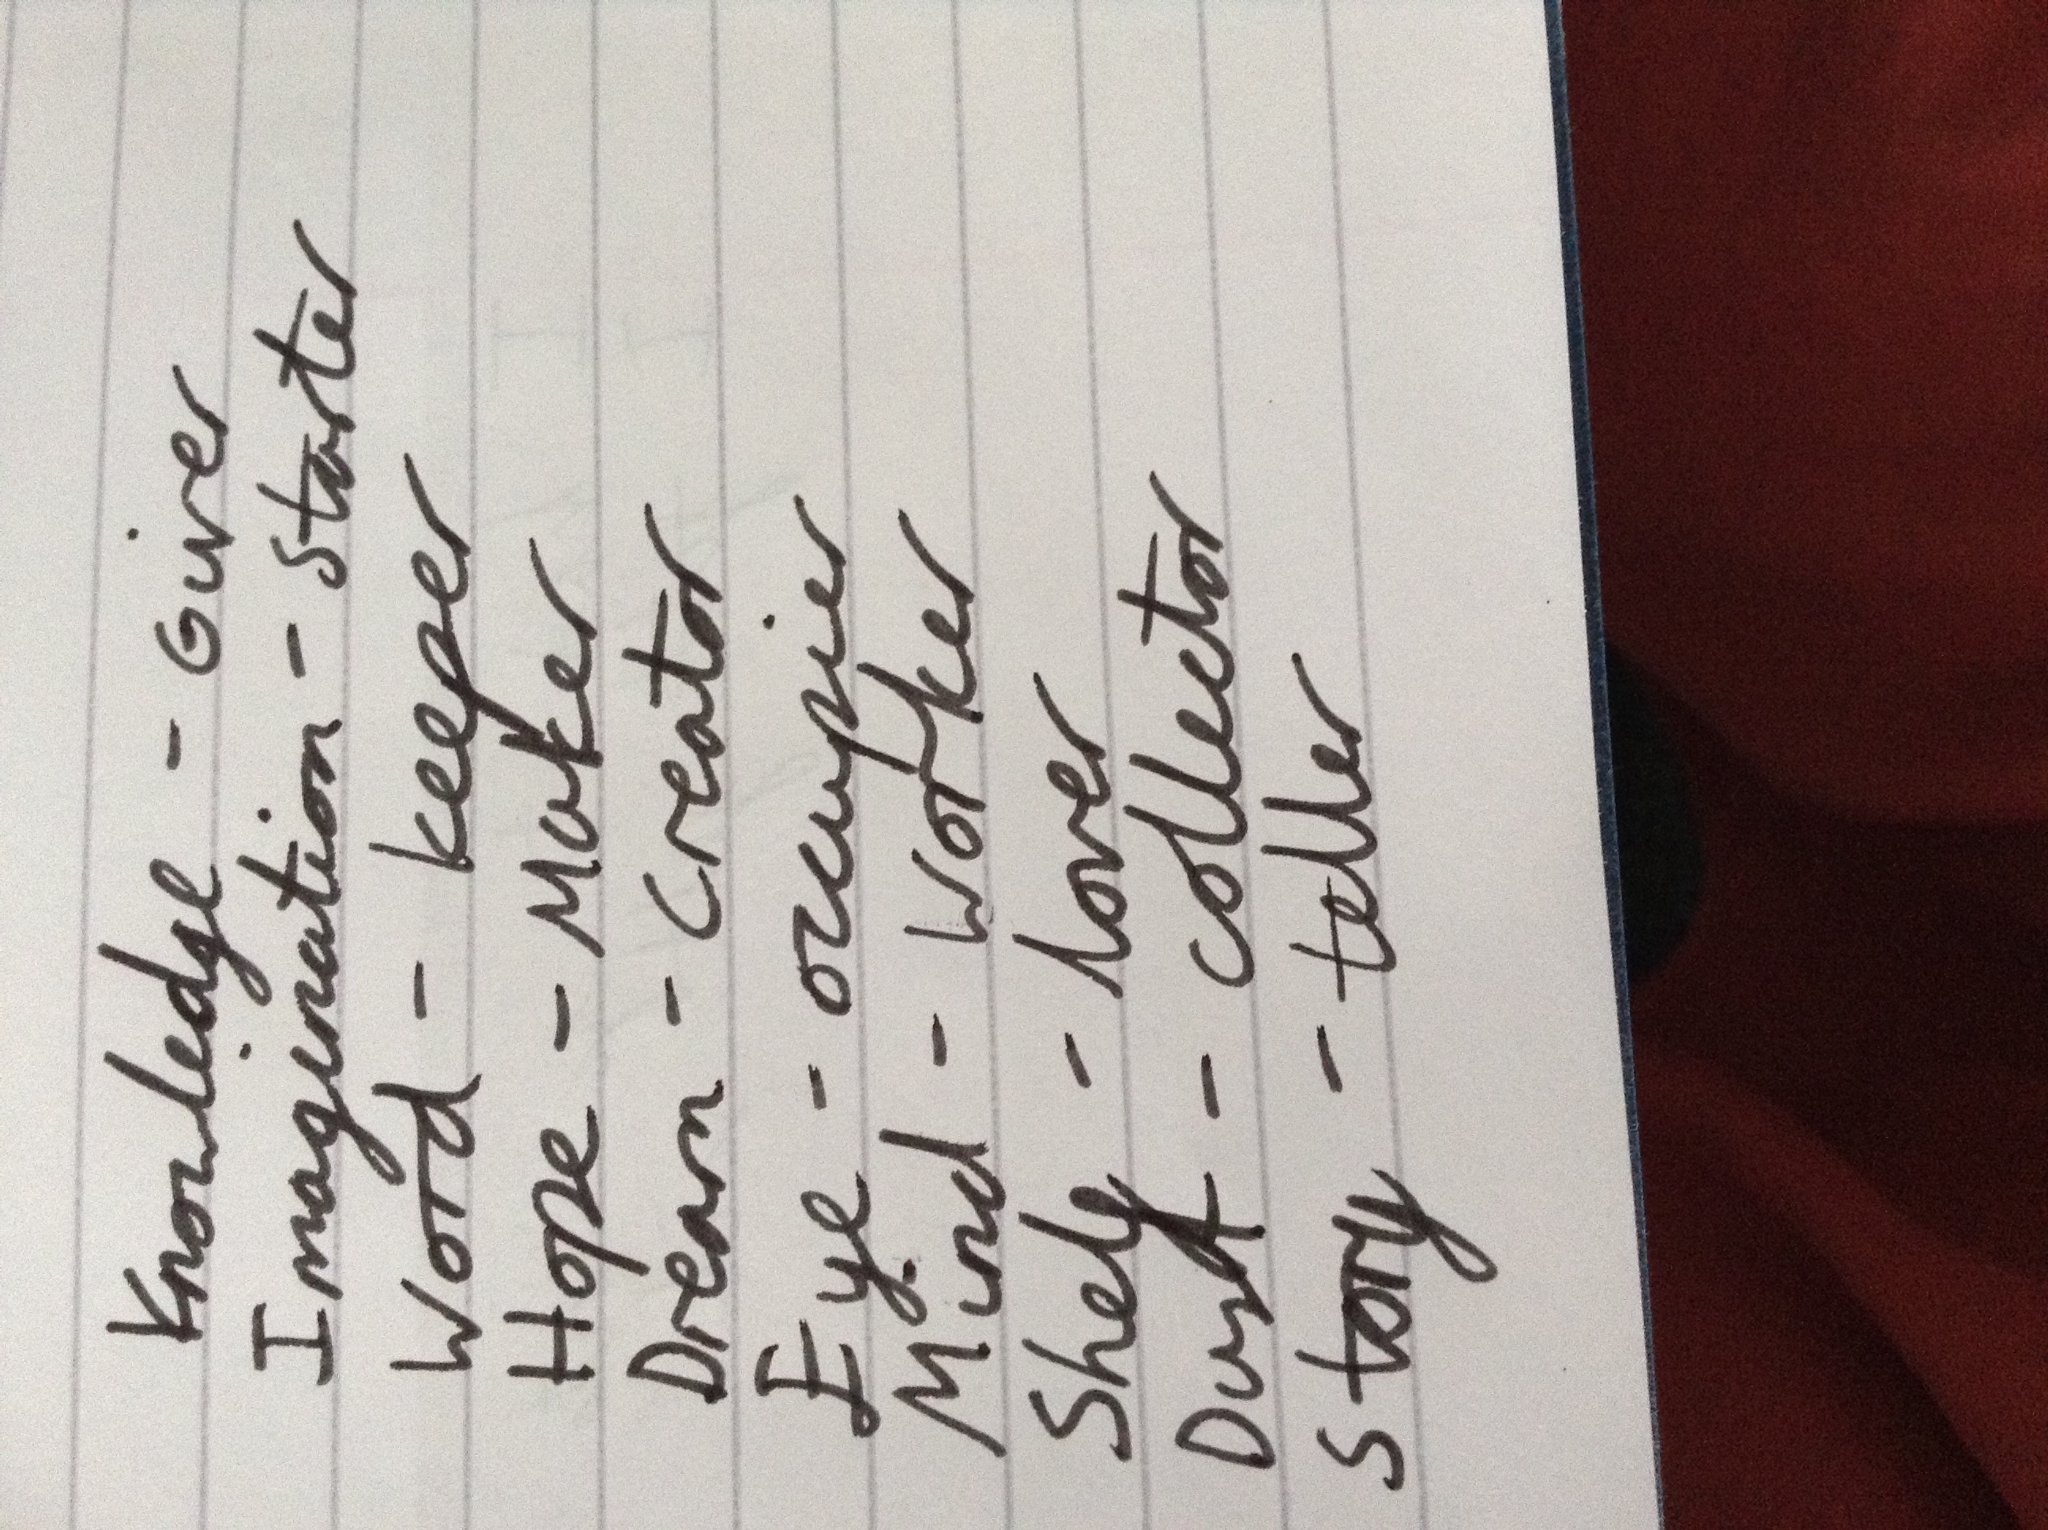 Knowledge - Giver
Imagination - Starter
Word - keeper
Hope - Maker
Dream - Creator
Eye - occupier
Mind - worker
Shelf - lover
Dust - collector
Story - teller